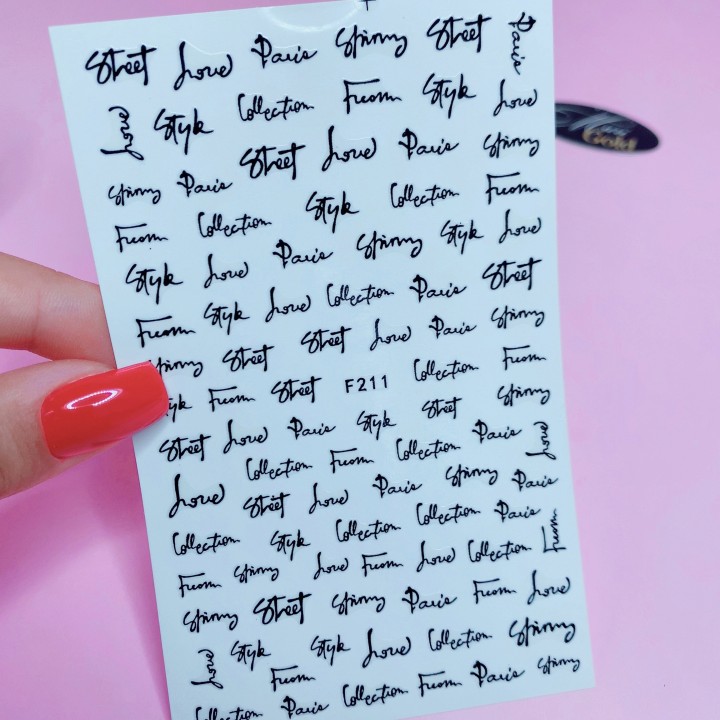 Street Love Paris Spirmy Street Paris
Love Style Collection From Style Love
Spirmy Paris Street Love Paris Spirmy
From Collection Style Collection From
Style Love Paris Spirmy Style Love
From Style Love Collection Paris Street
Spirmy Street Street Love Paris Spirmy
yle From Street F211 Collection From
Street Love Paris Style Street Spirmy
Collection From Collection Paris Love
Love Street Love Paris Spirmy Paris
Collection Style Collection Collection Paris
From Spirmy Love From Love Collection From
Spirmy Street Spirmy Paris From Love
Love Style Style Love Collection Spirmy
From
Collection Paris Collection From Paris Spirmy
Gold